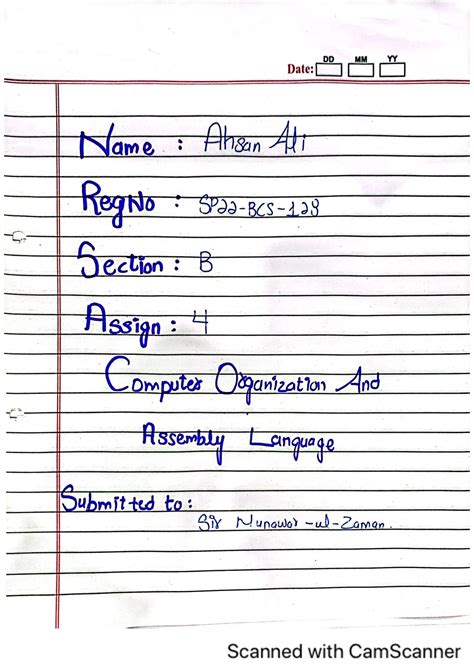 DD MM YY
Date:
Name : Ahsan Ali
RegNo : SP22-BCS-128
Section : B
Assign : 4
Computer Organization And
Assembly Language
Submitted to :
Sir Munawar-ul-Zaman.
Scanned with CamScanner